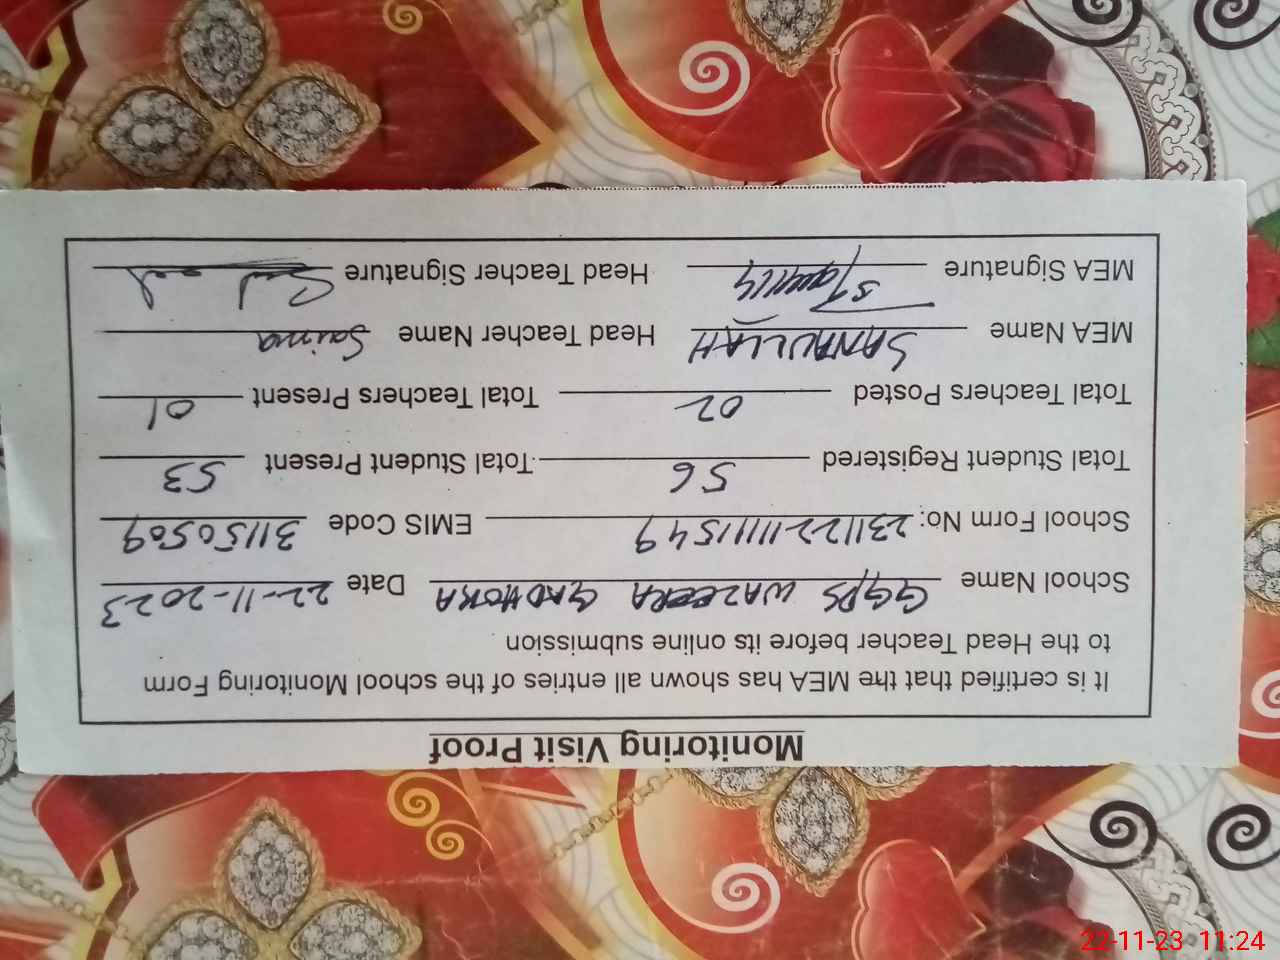 Monitoring Visit Proof
It is certified that the MEA has shown all entries of the school Monitoring Form
to the Head Teacher before its online submission
School Name GGPS WAZEERA GADHOKA Date 22-11-2023
School Form No: 231122111111549 EMIS Code 31150509
Total Student Registered 56 Total Student Present 53
Total Teachers Posted 02 Total Teachers Present 01
MEA Name SANAULLAH Head Teacher Name Saima
MEA Signature Head Teacher Signature
22-11-23 11:24